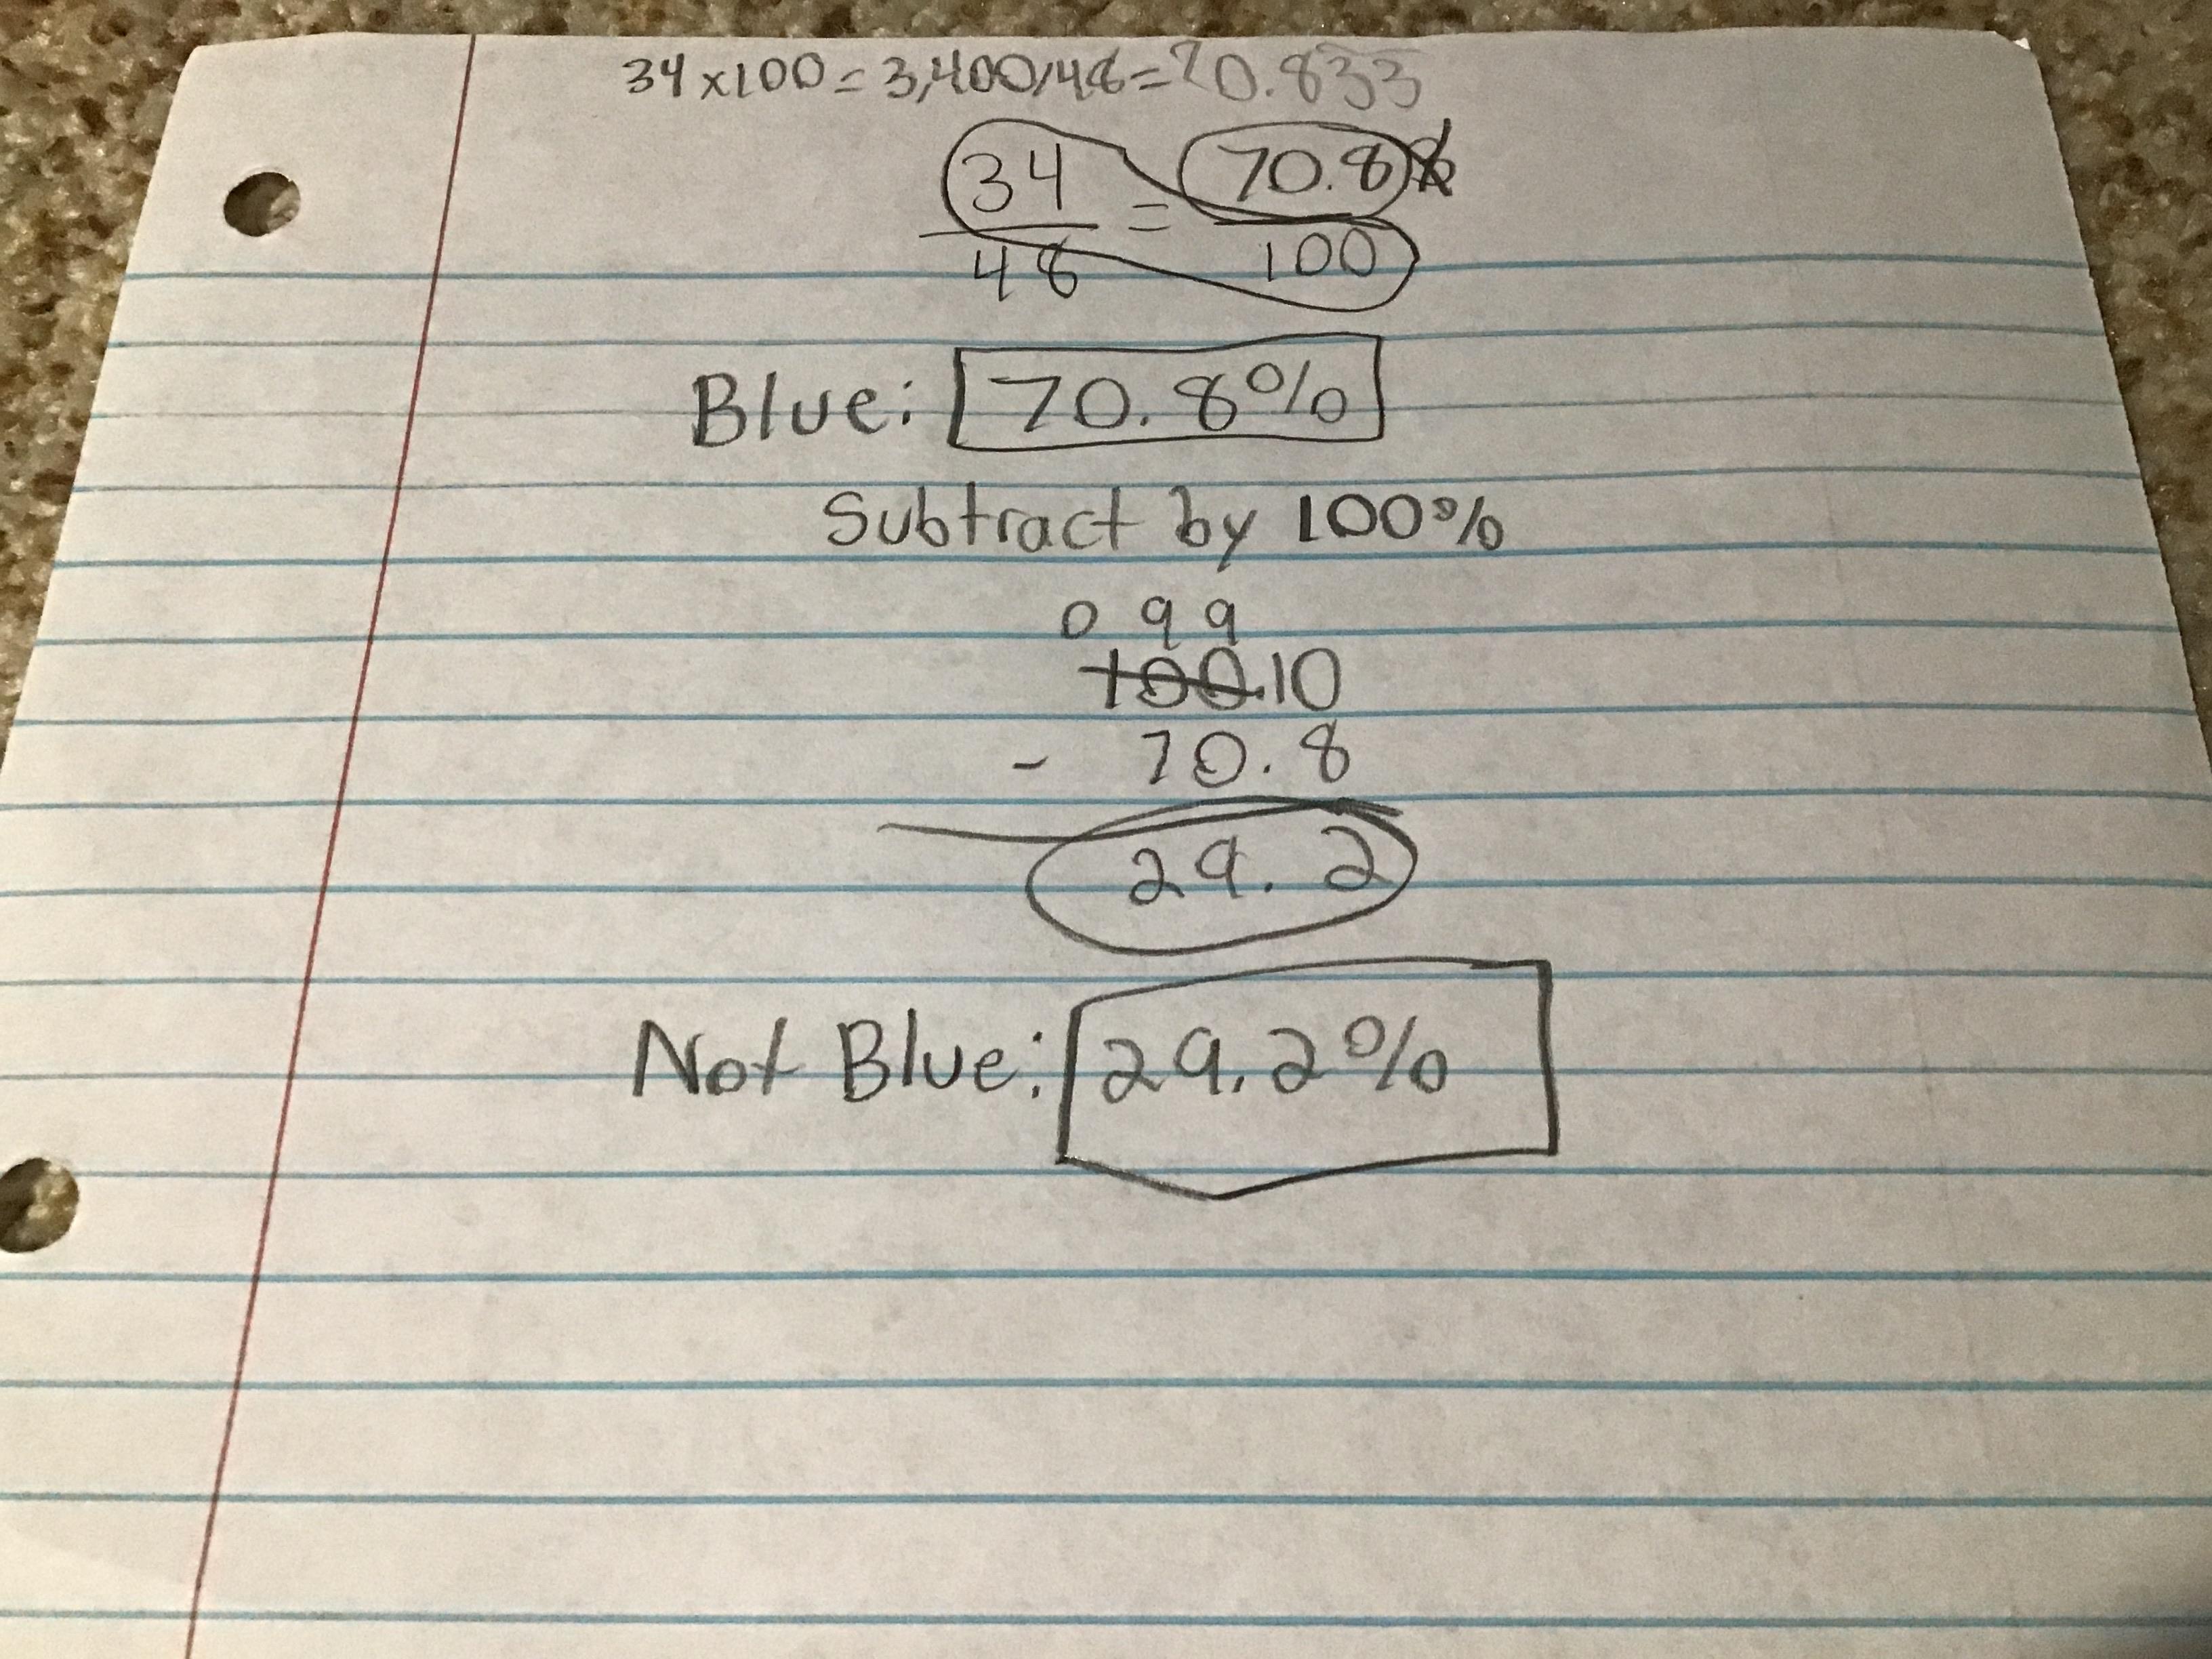 34x100=3,400/48=70.833
34 = 70.8
48 100
Blue: 70.8%
Subtract by 100%
0 9 9
100.10
- 70.8
29.2
Not Blue: 29.2%